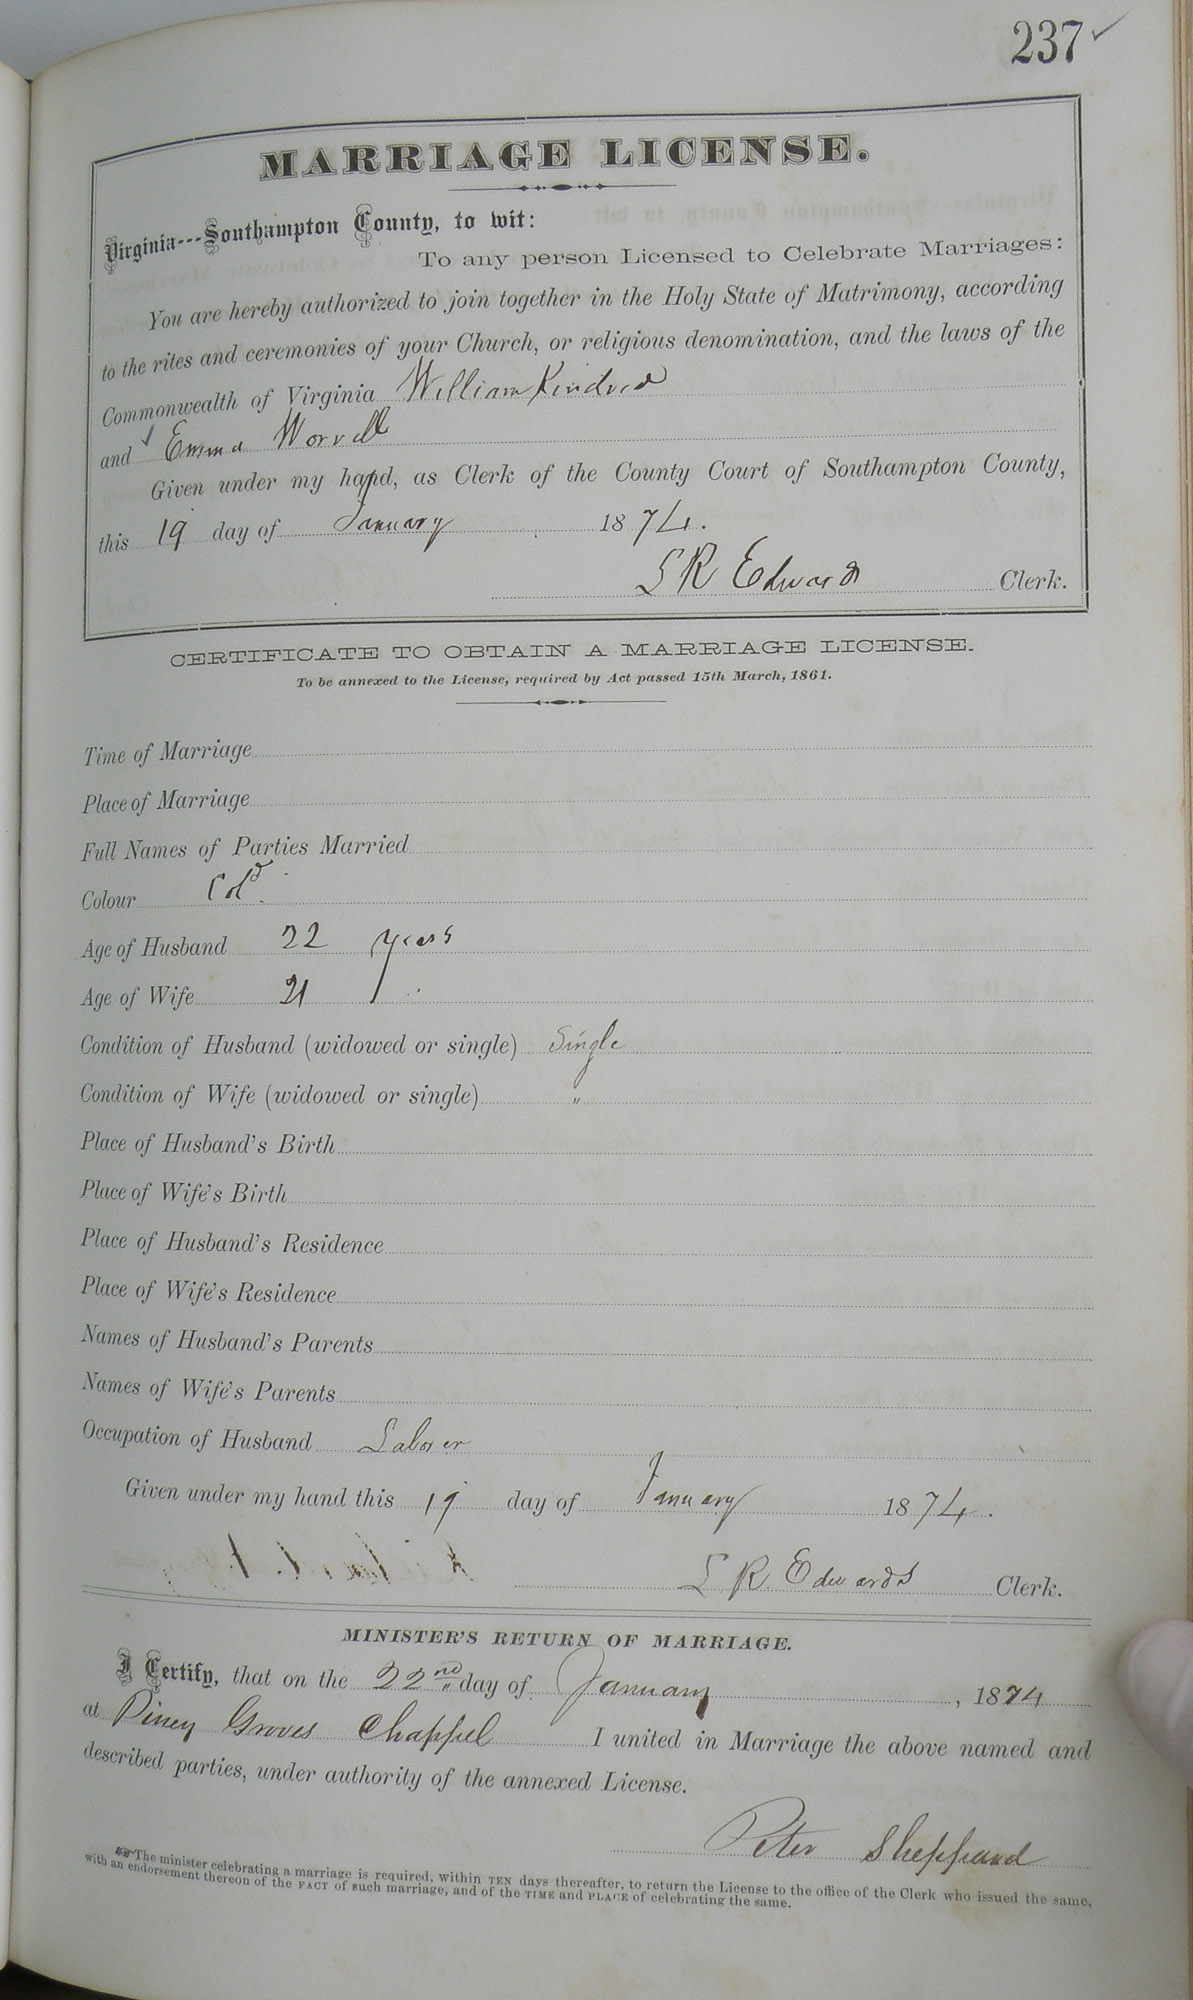 237
MARRIAGE LICENSE.
Virginia---Southampton County, to wit:
To any person Licensed to Celebrate Marriages:
You are hereby authorized to join together in the Holy State of Matrimony, according
to the rites and ceremonies of your Church, or religious denomination, and the laws of the
Commonwealth of Virginia William Kindred
and Emma Worrell
Given under my hand, as Clerk of the County Court of Southampton County,
this 19 day of January 1874.
L R Edwards Clerk.
CERTIFICATE TO OBTAIN A MARRIAGE LICENSE.
To be annexed to the License, required by Act passed 15th March, 1861.
Time of Marriage
Place of Marriage
Full Names of Parties Married
Colour Cold.
Age of Husband 22 years
Age of Wife 21 "
Condition of Husband (widowed or single) Single
Condition of Wife (widowed or single) "
Place of Husband's Birth
Place of Wife's Birth
Place of Husband's Residence
Place of Wife's Residence
Names of Husband's Parents
Names of Wife's Parents
Occupation of Husband Laborer
Given under my hand this 19 day of January 1874.
L R. Edwards Clerk.
MINISTER'S RETURN OF MARRIAGE.
I Certify, that on the 22nd day of January, 1874
at Piney Groves Chappel I united in Marriage the above named and
described parties, under authority of the annexed License.
Peter Sheppard
The minister celebrating a marriage is required, within TEN days thereafter, to return the License to the office of the Clerk who issued the same,
with an endorsement thereon of the FACT of such marriage, and of the TIME and PLACE of celebrating the same.